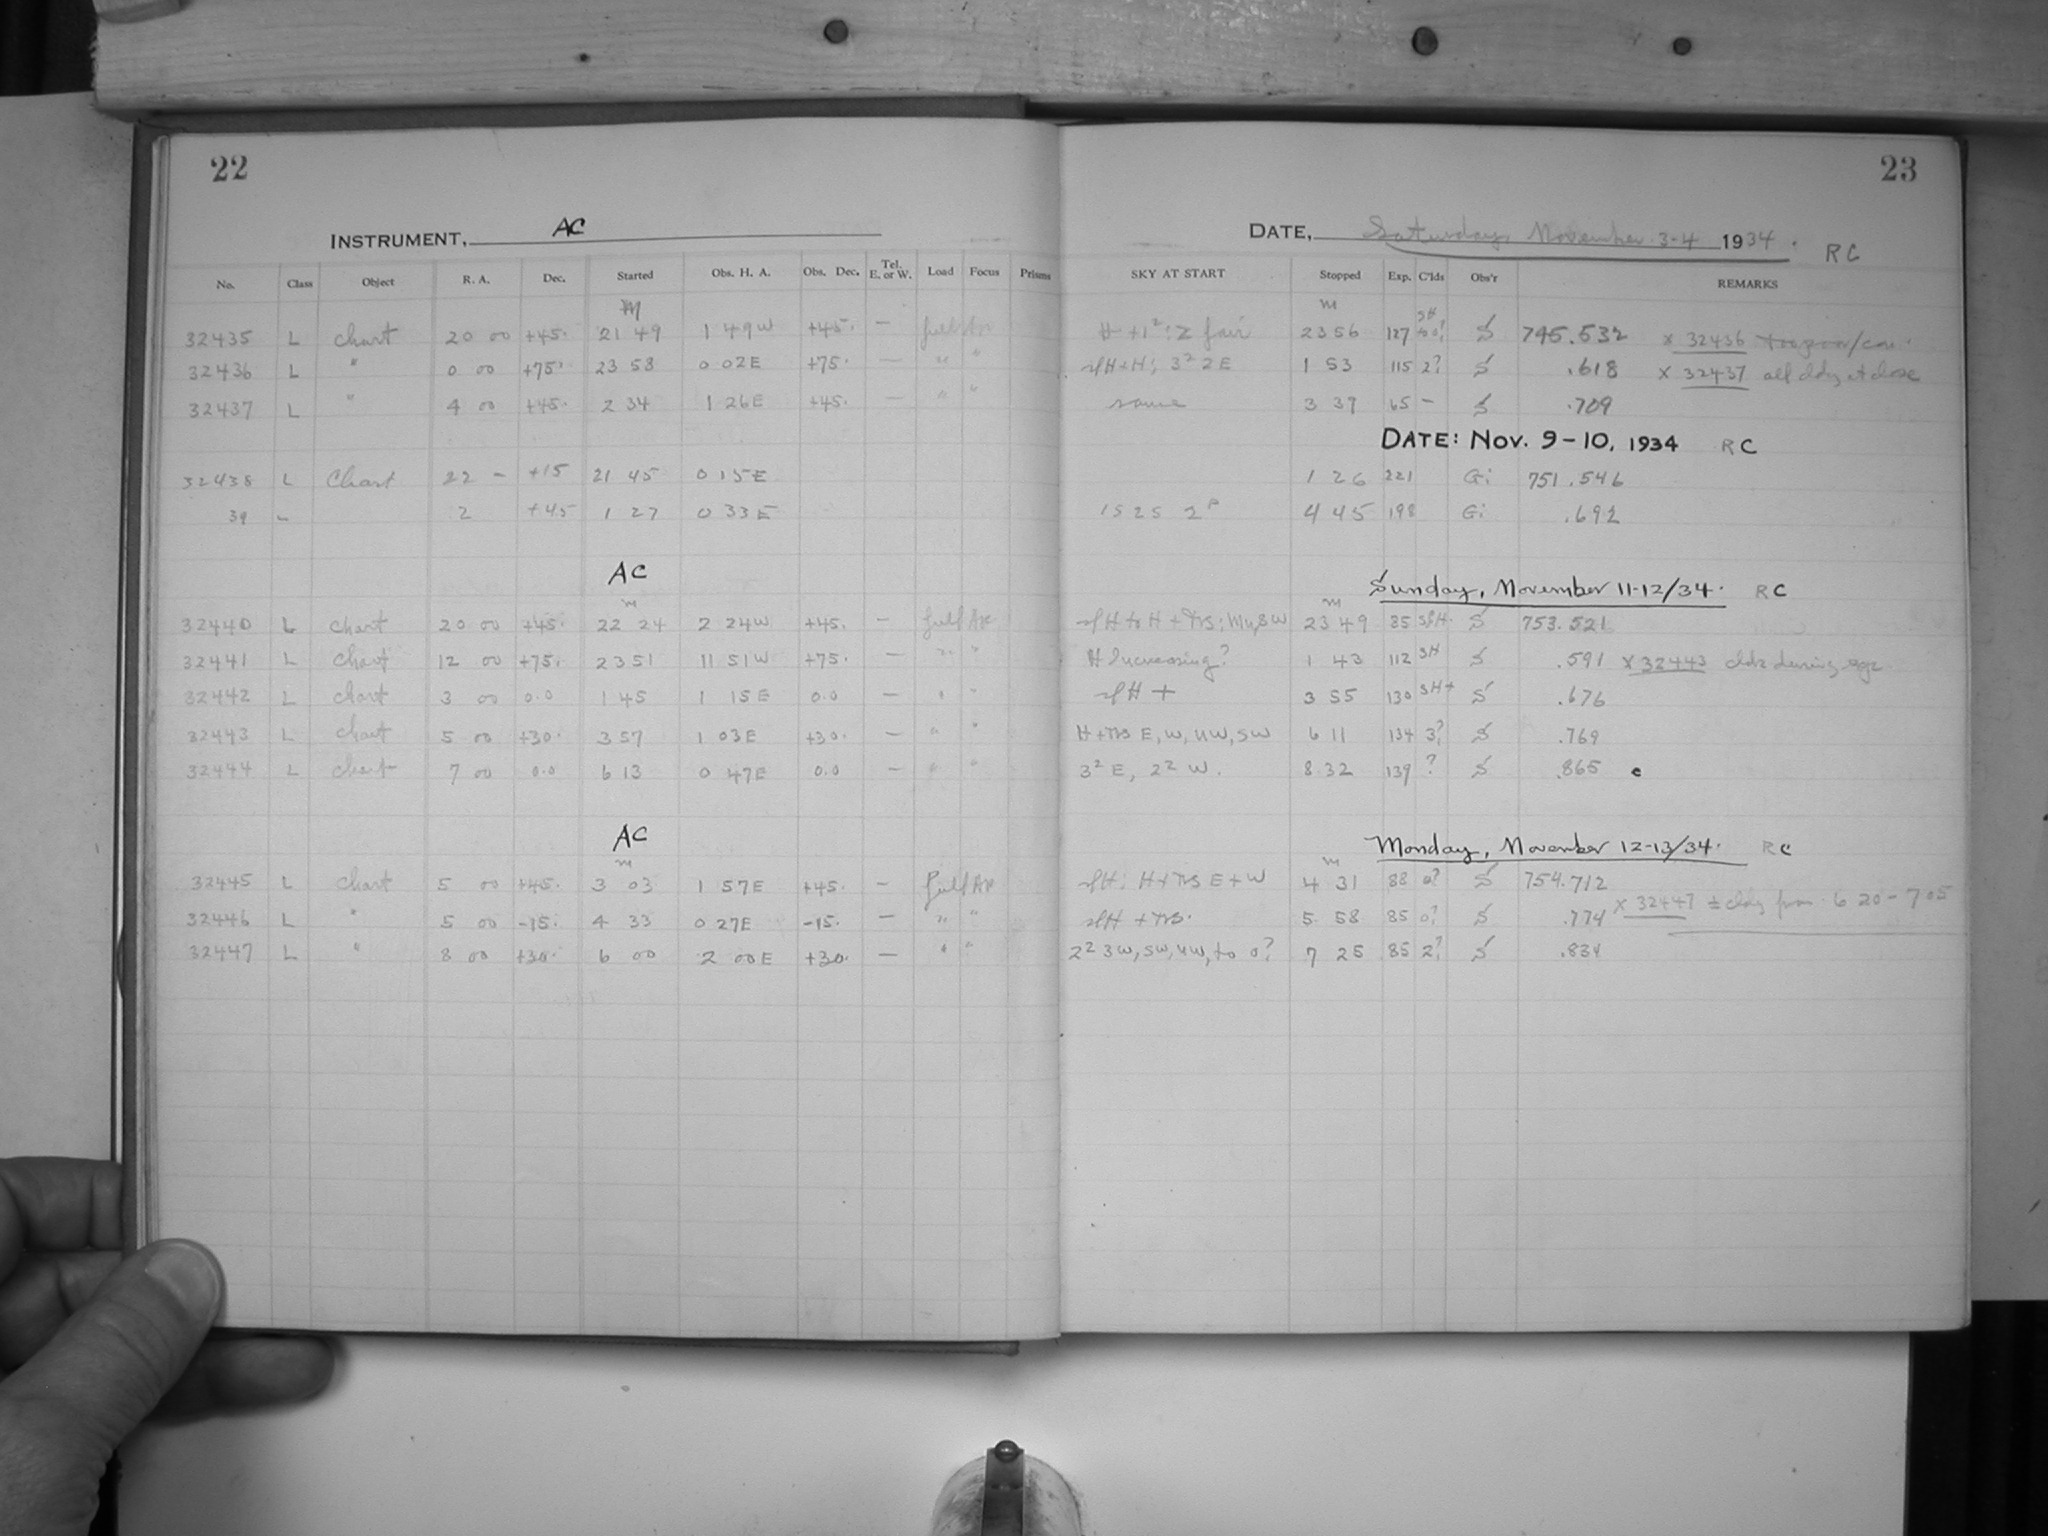 22
23
INSTRUMENT, AC
DATE, Saturday, November 3-4 1934. RC
No. Class Object R. A. Dec. Started Obs. H. A. Obs. Dec. Tel. E. or W. Load Focus Prisms SKY AT START Stopped Exp. C'lds Obs'r REMARKS
m m
32435 L Chart 20 00 +45. 21 49 1 49W +45. — full Ax H +1²: 2 fair 23 56 127 S 745.532 x 32436
32436 L " 0 00 +75. 23 58 0 02E +75. — " " slH+H; 3² 2E 1 53 115 2? S .618 x 32437 all cldy at close
32437 L " 4 00 +45. 2 34 1 26E +45. — " " same 3 39 65 — S .709
DATE: Nov. 9-10, 1934 RC
32438 L Chart 22 - +15 21 45 0 15E 1 26 221 Gi 751.546
39 2 +45 1 27 0 33E 1S 2S 2P 4 45 198 Gi .692
AC Sunday, November 11-12/34. RC
m m
32440 L Chart 20 00 +45. 22 24 2 24W +45. — full Ax slH to H + 23 49 85 slH. S 753.521
32441 L Chart 12 00 +75. 23 51 11 51W +75. — " " H Increasing? 1 43 112 SH S .591 x 32443 clds during exp.
32442 L Chart 3 00 0.0 1 45 1 15E 0.0 — " " slH + 3 55 130 SH+ S .676
32443 L Chart 5 00 +30. 3 57 1 03E +30. — " " H+ E, W, NW, SW 6 11 134 3? S .769
32444 L Chart 7 00 0.0 6 13 0 47E 0.0 — " " 3² E, 2² W. 8 32 139 ? S .865 c
AC Monday, November 12-13/34. RC
m m
32445 L Chart 5 00 +45. 3 03 1 57E +45. — full Ax slH; H+ E+W 4 31 88 0? S 754.712
32446 L " 5 00 -15. 4 33 0 27E -15. — " " slH + 5 58 85 0? S .774 x 32447 ± cldy from 6 20 - 7 05
32447 L " 8 00 +30. 6 00 2 00E +30. — " " 2² 3W, SW, NW, to 0? 7 25 85 2? S .834